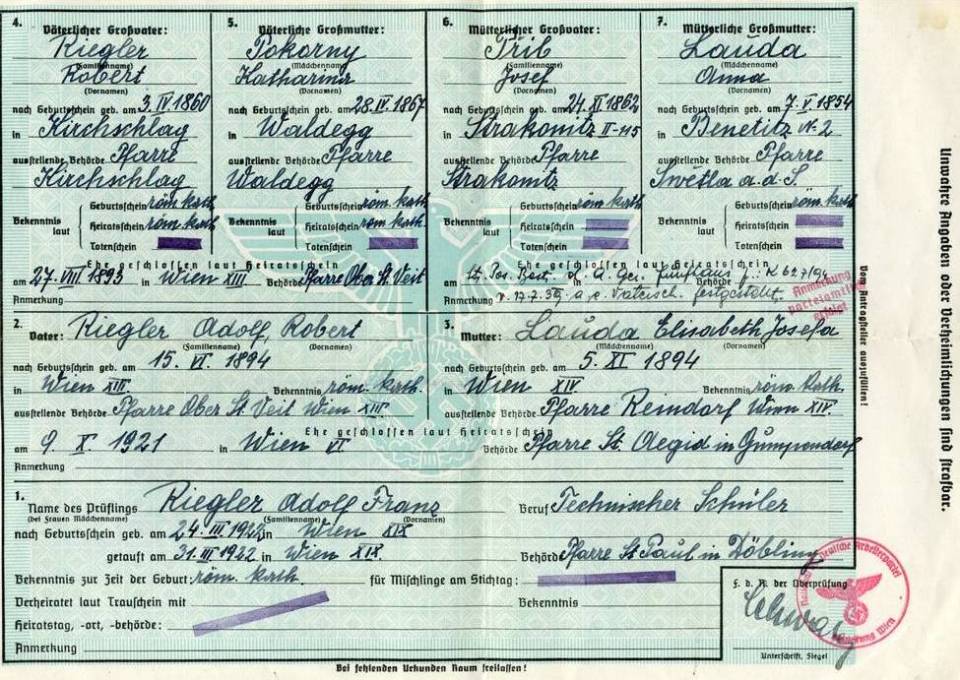 4. Väterlicher Großvater:
Riegler
(Familienname)
Robert
(Vornamen)
nach Geburtschein geb. am 3. IV 1860
in Kirchschlag
ausstellende Behörde Pfarre
Kirchschlag
Bekenntnis laut
Geburtschein röm. kath.
Heiratschein röm. kath.
Totenschein
5. Väterliche Großmutter:
Pokorny
(Mädchenname)
Katharina
(Vornamen)
nach Geburtschein geb. am 28. IV. 1867
in Waldegg
ausstellende Behörde Pfarre
Waldegg
Bekenntnis laut
Geburtschein röm. kath.
Heiratschein röm. kath.
Totenschein
6. Mütterlicher Großvater:
Přib
(Familienname)
Josef
(Vornamen)
nach Geburtschein geb. am 24. XI 1862
in Strakonitz II-115
ausstellende Behörde Pfarre
Strakonitz
Bekenntnis laut
Geburtschein röm. kath.
Heiratschein
Totenschein
7. Mütterliche Großmutter:
Lauda
(Mädchenname)
Anna
(Vornamen)
nach Geburtschein geb. am 7. V. 1854
in Benetitz N. 2
ausstellende Behörde Pfarre
Swětla a. d. S.
Bekenntnis laut
Geburtschein röm. kath.
Heiratschein
Totenschein
Ehe geschlossen laut Heiratschein
am 27. VIII 1893 in Wien XIII Behörde Pfarre Ober St. Veit
Anmerkung
Ehe geschlossen laut Heiratschein
am lt. in d. A. Ger. Fünfhaus Behörde
Anmerkung v. 17.7.39 festgestellt.
Anmerkung
parteiamtlich
erfolgt
2. Vater: Riegler Adolf, Robert
(Familienname) (Vornamen)
nach Geburtschein geb. am 15. VI. 1894
in Wien XIII Bekenntnis röm. kath.
ausstellende Behörde Pfarre Ober St. Veit Wien XIII
3. Mutter: Lauda Elisabeth, Josefa
(Mädchenname) (Vornamen)
nach Geburtschein geb. am 5. XI 1894
in Wien XIV Bekenntnis röm. kath.
ausstellende Behörde Pfarre Reindorf Wien XIV.
Ehe geschlossen laut Heiratschein
am 9. X. 1921 in Wien VI Behörde Pfarre St. Aegid in Gumpendorf
Anmerkung
1. Name des Prüflings Riegler Adolf Franz Beruf Technischer Schüler
(bei Frauen Mädchenname) (Familienname) (Vornamen)
nach Geburtschein geb. am 24. III. 1922 in Wien XIX
getauft am 31. III 1922 in Wien XIX Behörde Pfarre St. Paul in Döbling
Bekenntnis zur Zeit der Geburt: röm. kath. für Mischlinge am Stichtag:
Verheiratet laut Trauschein mit Bekenntnis
Heiratstag, -ort, -behörde:
Anmerkung
F. d. R. der Überprüfung
Unterschrift, Siegel
Deutsche Arbeiterpartei
Wien
Bei fehlenden Urkunden Raum freilassen!
Vom Antragsteller auszufüllen!
Unwahre Angaben oder Verheimlichungen sind strafbar.